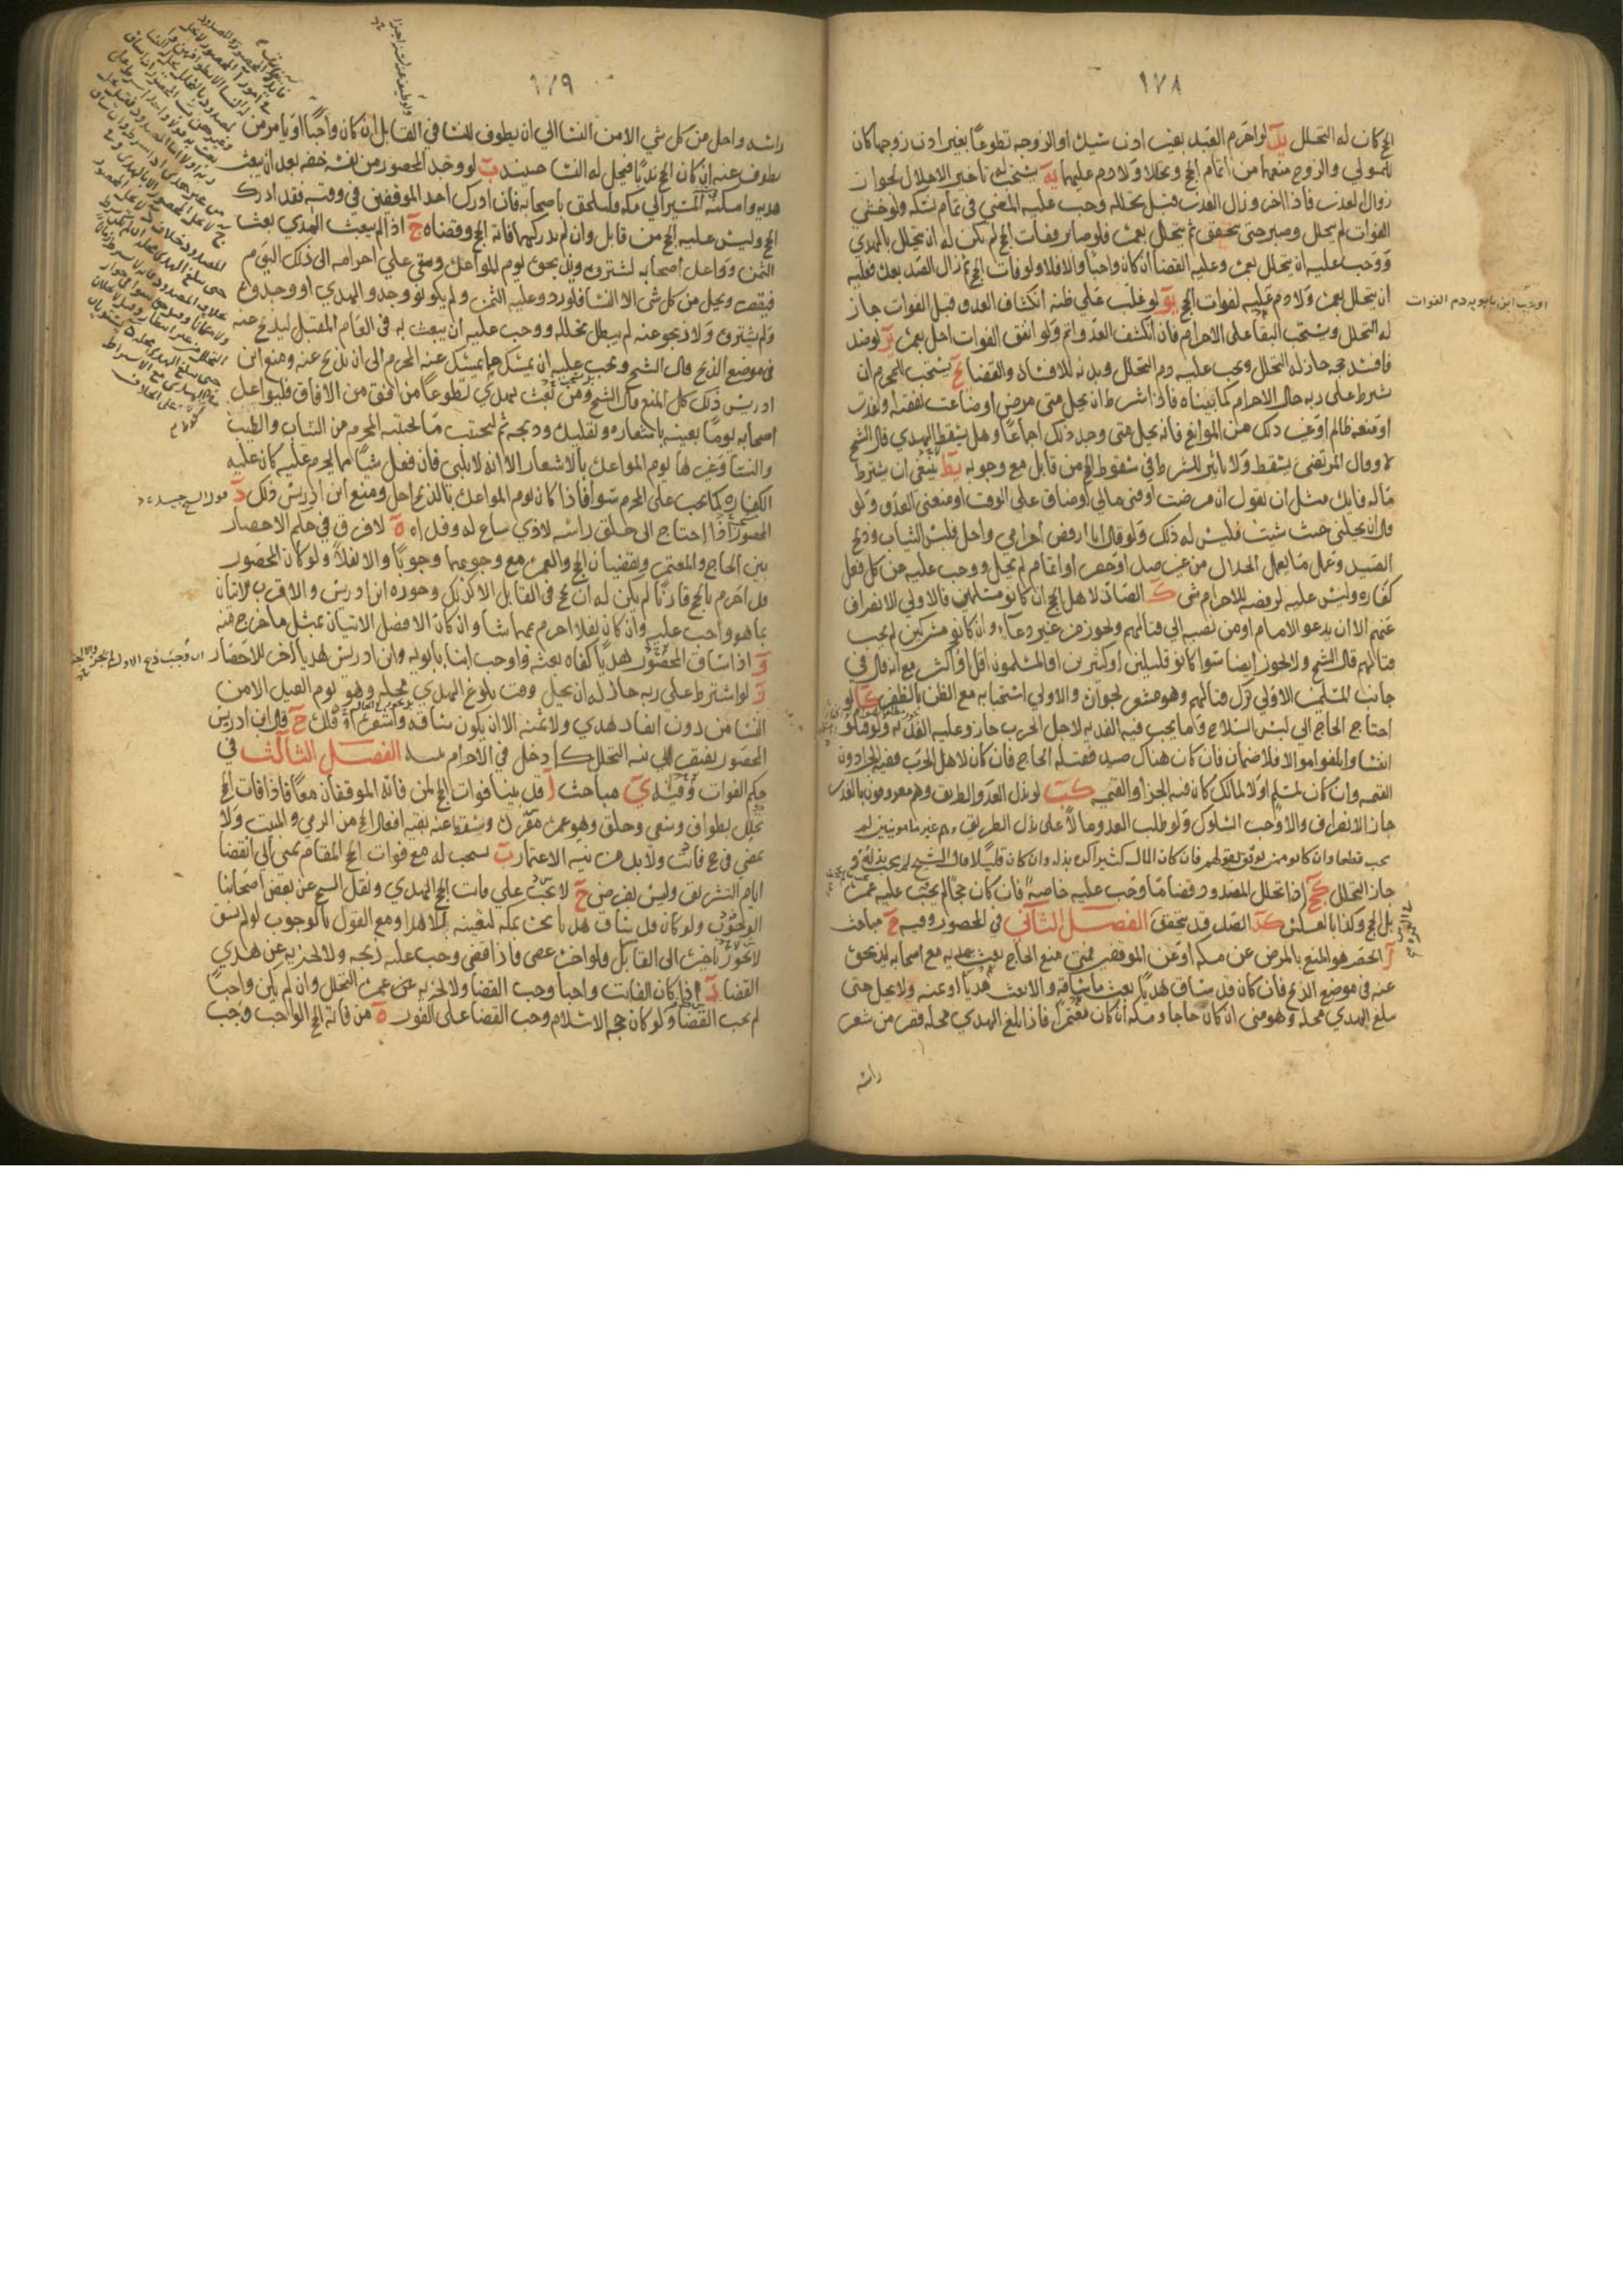 ١٧٨
الحج كان له التحلل يد لو احرم العبد بغير اذن سيده او الزوجة تطوعا بغير اذن زوجها كان
للمولى والزوج منعهما من اتمام الحج وتحللا ولا دم عليهما يه يستحب له تاخير الاحلال لجواز
زوال العذر فاذا اخر وزال العذر قبل تحلله وجب عليه المضي في تمام نسكه ولو خشي
الفوات لم يتحلل وصبر حتى يتحقق ثم يتحلل بعمرة فلو صابر ففات الحج لم يكن له ان يتحلل بالهدي
ووجب عليه ان يتحلل بعمرة وعليه القضا ان كان واجبا والا فلا ولو فات الحج ثم زال الصد بعده فعليه
ان يتحلل بعمرة ولا دم عليه لفوات الحج يو لو غلب على ظنه انكشاف العدو قبل الفوات جاز
اوجب ابن بابويه دم الفوات
له التحلل ويستحب البقا على الاحرام فان انكشف العدو اتم ولو اتفق الفوات احل بعمرة يز لو صد
فافسد حجه جاز له التحلل ويجب عليه دم التحلل وبدنة للافساد والقضا يح يستحب للمحرم ان
يشترط على ربه حال الاحرام كما بيناه فاذا شرط ان يحل متى مرض او ضاعت نفقته او نفدت
او منعه ظالم او غير ذلك من الموانع فانه يحل متى وجد ذلك اجماعا وهل يسقط الهدي قال الشيخ
لا وقال المرتضى يسقط ولا تاثير للشرط في سقوط الحج من قابل مع وجوبه يط ينبغي ان يشترط
ما له فايدة مثل ان يقول ان مرضت او فنى مالي او ضاق علي الوقت او منعني العدو ولو
قال ان يحلني حيث شئت فليس له ذلك ولو قال انا ارفض احرامي واحل فلبس الثياب وذبح
الصيد وعمل ما يعمل الحلال من غير صد او حصر او اتمام لم يحل ووجب عليه عن كل فعل
كفارة وليس عليه لرفضه للاحرام شي ك الصاد لاهل الحج ان كانو مسلمين فالاولى الانصراف
عنهم الا ان يدعو الامام او من نصبه الى قتالهم ويجوز من غير دعاء وان كانو مشركين لم يجب
قتالهم قال الشيخ ولا يجوز ايضا سوا كانو قليلين او كثيرين او المسلمون اقل او اكثر مع انه قال في
جانب المسلمين الاولى ترك قتالهم وهو مشعر بجوازه والاولى استحبابه مع الظن بالظفر كا لو
احتاج الحاج الى لبس السلاح وما يجب فيه الفدية لاجل الحرب جاز وعليه الفدية ولو قتلو
انفسا واتلفو اموالا فلا ضمان فان كان هناك صيد فقتله الحاج فان كان لاهل الحرب ففيه الجزا دون
القيمة وان كان لمسلم او لا مالك كان فيه الجزا والقيمة كب لو بذل العدو الطريق وهم معروفون بالغدر
جاز الانصراف والا وجب السلوك ولو طلب العدو مالا على بذل الطريق وهم غير مامونين لم
يجب قطعا وان كانو ممن يوثق بقولهم فان كان المال كثيرا كره بذله وان كان قليلا قال الشيخ لا يجب بذله و
جاز التحلل كج اذا تحلل المصدود وقضا ما وجب عليه خاصة فان كان حجا لم يجب عليه عمرة
بل الحج وكذا بالعكس كد الصد قد يتحقق الفصل الثاني في المحصور وفيه ح مباحث
ا الحصر هو المنع بالمرض عن مكة او عن الموقفين فمتى منع الحاج بعث هديه مع اصحابه ليذبحوه
عنه في موضع الذبح فان كان قد ساق هديا بعث ما ساقه والا بعث هديا او ثمنه ولا يحل حتى
يبلغ الهدي محله وهو منى ان كان حاجا ومكة ان كان معتمرا فاذا بلغ الهدي محله قصر من شعر
راسه
١٧٩
راسه واحل من كل شي الا من النسا الى ان يطوف للنسا في القابل ان كان واجبا او يامر من
يطوف عنه ان كان الحج ندبا فيحل له النسا حينيذ ب لو وجد المحصور من نفسه خفة بعد ان بعث
هديه وامكنه المسير الى مكة فليلحق باصحابه فان ادرك احد الموقفين في وقته فقد ادرك
الحج وليس عليه الحج من قابل وان لم يدركهما فاته الحج وقضاه ج اذا لم يبعث الهدي بعث
الثمن وواعد اصحابه لشتروه ويذبحوه يوم المواعدة وبقي على احرامه الى ذلك اليوم
فيقصر ويحل من كل شي الا النسا فلو ردو عليه الثمن ولم يكونو وجدو الهدي او وجدوه
ولم يشتروه ولا ذبحو عنه لم يبطل تحلله ووجب عليه ان يبعث به في العام المقبل ليذبح عنه
في موضع الذبح قال الشيخ ويجب عليه ان يمسك مما يمسك عنه المحرم الى ان يذبح عنه ومنع ابن
ادريس ذلك كل المنع قال الشيخ ومن بعث بهدي تطوعا من افق من الافاق فليواعد
اصحابه يوما بعينه باشعاره وتقليده وذبحه ثم ليجتنب ما يجتنبه المحرم من الثياب والطيب
والنسا وغيرها يوم المواعدة بالاشعار الا انه لا يلبي فان فعل شيئا مما يحرم عليه كان عليه
الكفارة كما يجب على المحرم سوا فاذا كان يوم المواعدة بالذبح احل ومنع ابن ادريس ذلك د
المحصور اذا احتاج الى حلق راسه لاذى ساغ له وفداه ه لا فرق في حكم الاحصار
بين الحاج والمعتمر ويقضيان الحج والعمرة مع وجوبهما وجوبا والا نفلا ولو كان المحصور
قد احرم بالحج قارنا لم يكن له ان يحج في القابل الا كذلك وجوزه ابن ادريس والاقرب الاتيان
بما هو واجب عليه وان كان نفلا احرم بمهما شا وان كان الافضل الاتيان بمثل ما خرج منه
و اذا ساق المحصور هديا كفاه بعثه واوجب ابنا بابويه وابن ادريس هديا اخر للاحصار
ز لو اشترط على ربه جاز له ان يحل وقت بلوغ الهدي محله وهو يوم العيد الا من
النسا من دون انفاد هدي ولا ثمنه الا ان يكون ساقه واشعره او قلده ح قال ابن ادريس
المحصور يفتقر الى نية التحلل كما دخل في الاحرام بنية الفصل الثالث في
حكم الفوات وفيه ي مباحث ا قد بينا فوات الحج لمن فاته الموقفان معا فاذا فات الحج
تحلل بطواف وسعي وحلق وهو عمرة مفردة ويسقط عنه بقية افعال الحج من الرمي والمبيت ولا
يمضي في حج فاسد ولا بد من نية الاعتمار ب يستحب له مع فوات الحج المقام بمنى الى انقضا
ايام التشريق وليس بفرض ج لا يجب على فايت الحج الهدي ونقل الشيخ عن بعض اصحابنا
الوجوب ولو كان قد ساق هديا نحره بمكة لتعينه للاهدا ومع القول بالوجوب لو لم يسق
لا يجوز تاخيره الى القابل ولو اخره عصى فاذا قضى وجب عليه ذبحه ولا يجزيه عن هدي
القضا د اذا كان الفايت واجبا وجب القضا ولا تجزيه عن عمرة التحلل وان لم يكن واجبا
لم يجب القضا ولو كان حجة الاسلام وجب القضا على الفور ه من فاته الحج الواجب وجب